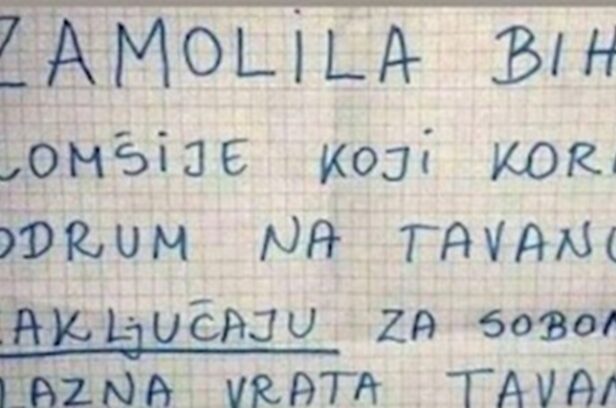 ZAMOLILA BIH
KOMŠIJE KOJI KOR
ODRUM NA TAVANU
ZAKLJUČAJU ZA SOBOM
LAZNA VRATA TAVAN